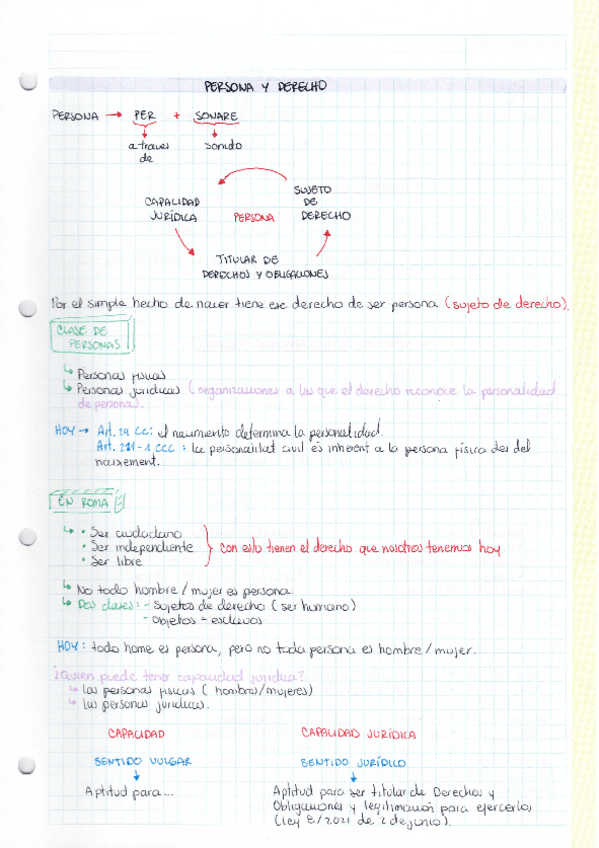 PERSONA Y DERECHO
PERSONA → PER + SONARE
a traves de
sonido
CAPALIDAD JURÍDICA
PERSONA
SUJETO DE DERECHO
TITULAR DE DERECHOS Y OBLIGACIONES
Por el simple hecho de nacer tiene ese derecho de ser persona (sujeto de derecho).
CLASE DE PERSONAS
↳ Personas fisicas
↳ Personas juridicas (organizaciones a las que el derecho reconoce la personalidad
de personas.
HOY → Art. 29 CC: el nacimiento determina la personalidad.
Art. 211-1 CCC: la personalitat civil és inherent a la persona física des del
naixement.
EN ROMA
↳ • Ser ciudadano
• Ser independiente
• Ser libre
con esto tienen el derecho que nosotros tenemos hoy
↳ No todo hombre/mujer es persona
↳ Dos clases: - Sujetos de derecho (ser humano)
- Objetos = esclavos
HOY: todo home es persona, pero no toda persona es hombre/mujer.
¿Quien puede tener capacidad juridica?
↳ Las personas fisicas (hombres/mujeres)
↳ Las personas juridicas.
CAPACIDAD
CAPACIDAD JURÍDICA
SENTIDO VULGAR
SENTIDO JURÍDICO
Aptitud para...
Aptitud para ser titular de Derechos y
Obligaciones y legitimación para ejercerlos
(ley 8/2021 de 2 de junio).